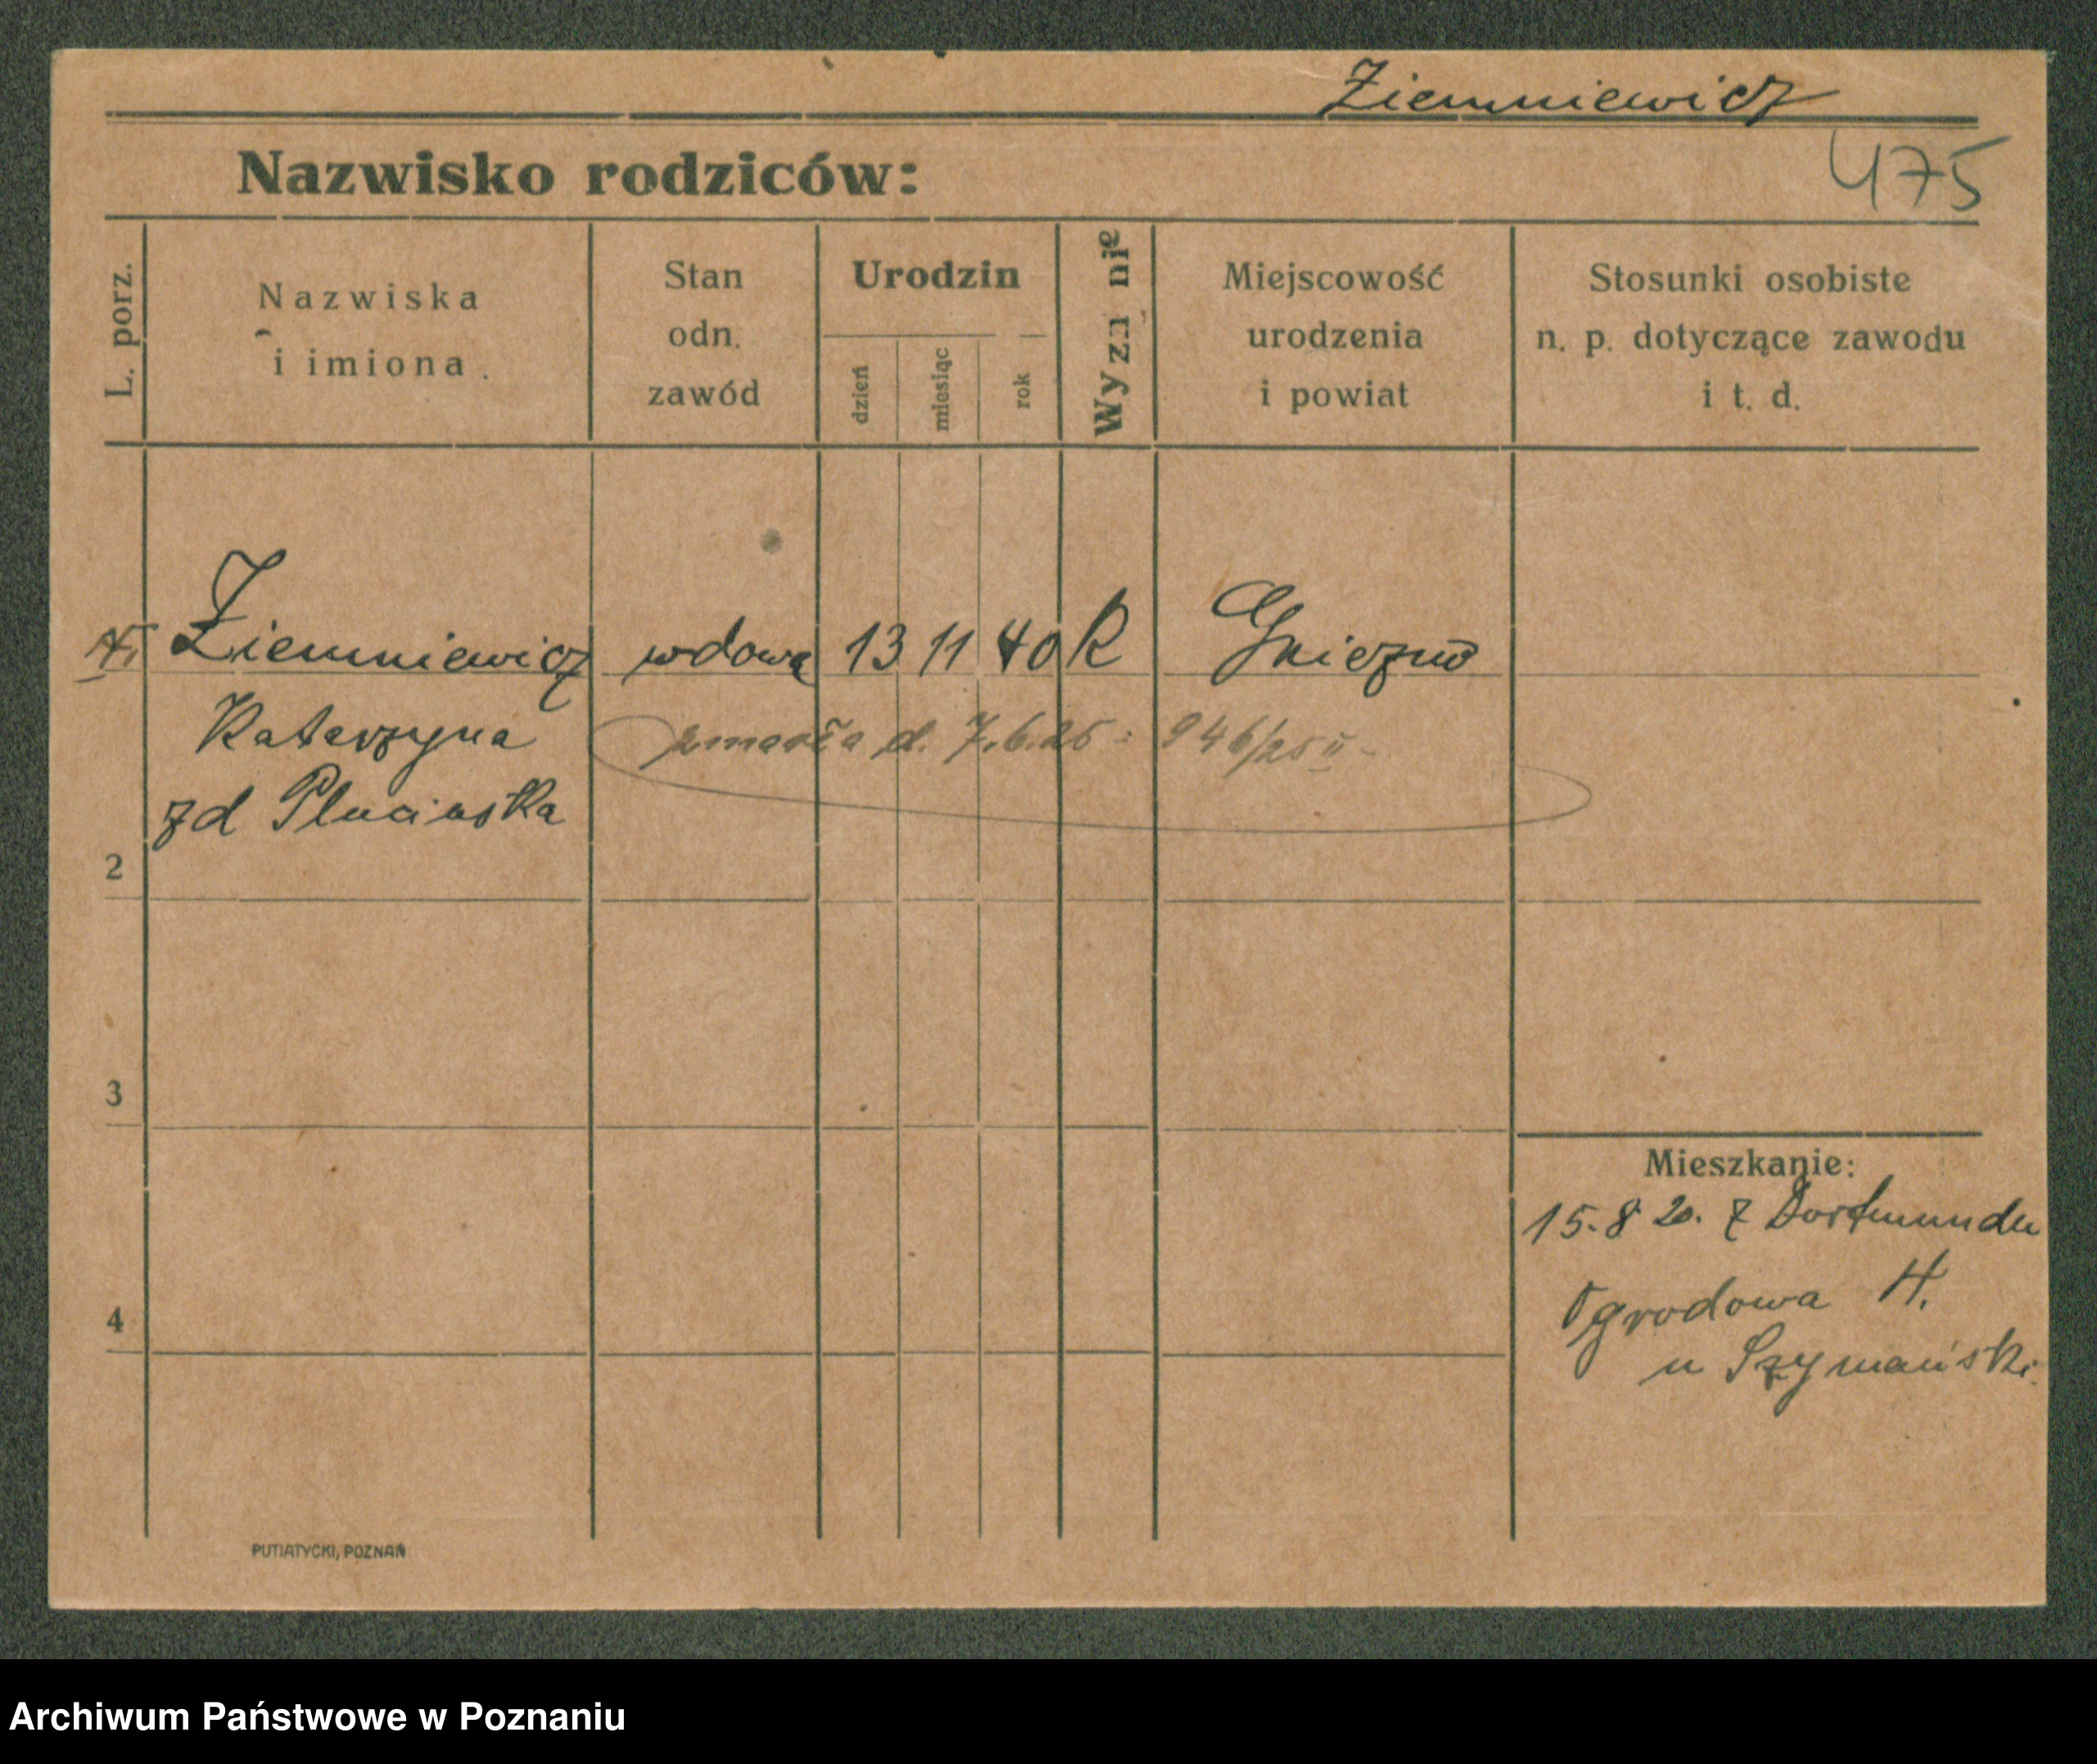 Ziemniewicz
475
Nazwisko rodziców:
L. porz.
Nazwiska
i imiona.
Stan
odn.
zawód
Urodzin
dzień
miesiąc
rok
Wyznnie
Miejscowość
urodzenia
i powiat
Stosunki osobiste
n. p. dotyczące zawodu
i t. d.
Ziemniewicz wdowa 13 11 40 R Gniezno
Katarzyna zmarła d. 7.6.25 : 946/25 II
zd Plucinska
2
3
Mieszkanie:
15.8 20. z Dortmundu
4
Ogrodowa
u Szymański
PUTIATYCKI, POZNAŃ
Archiwum Państwowe w Poznaniu